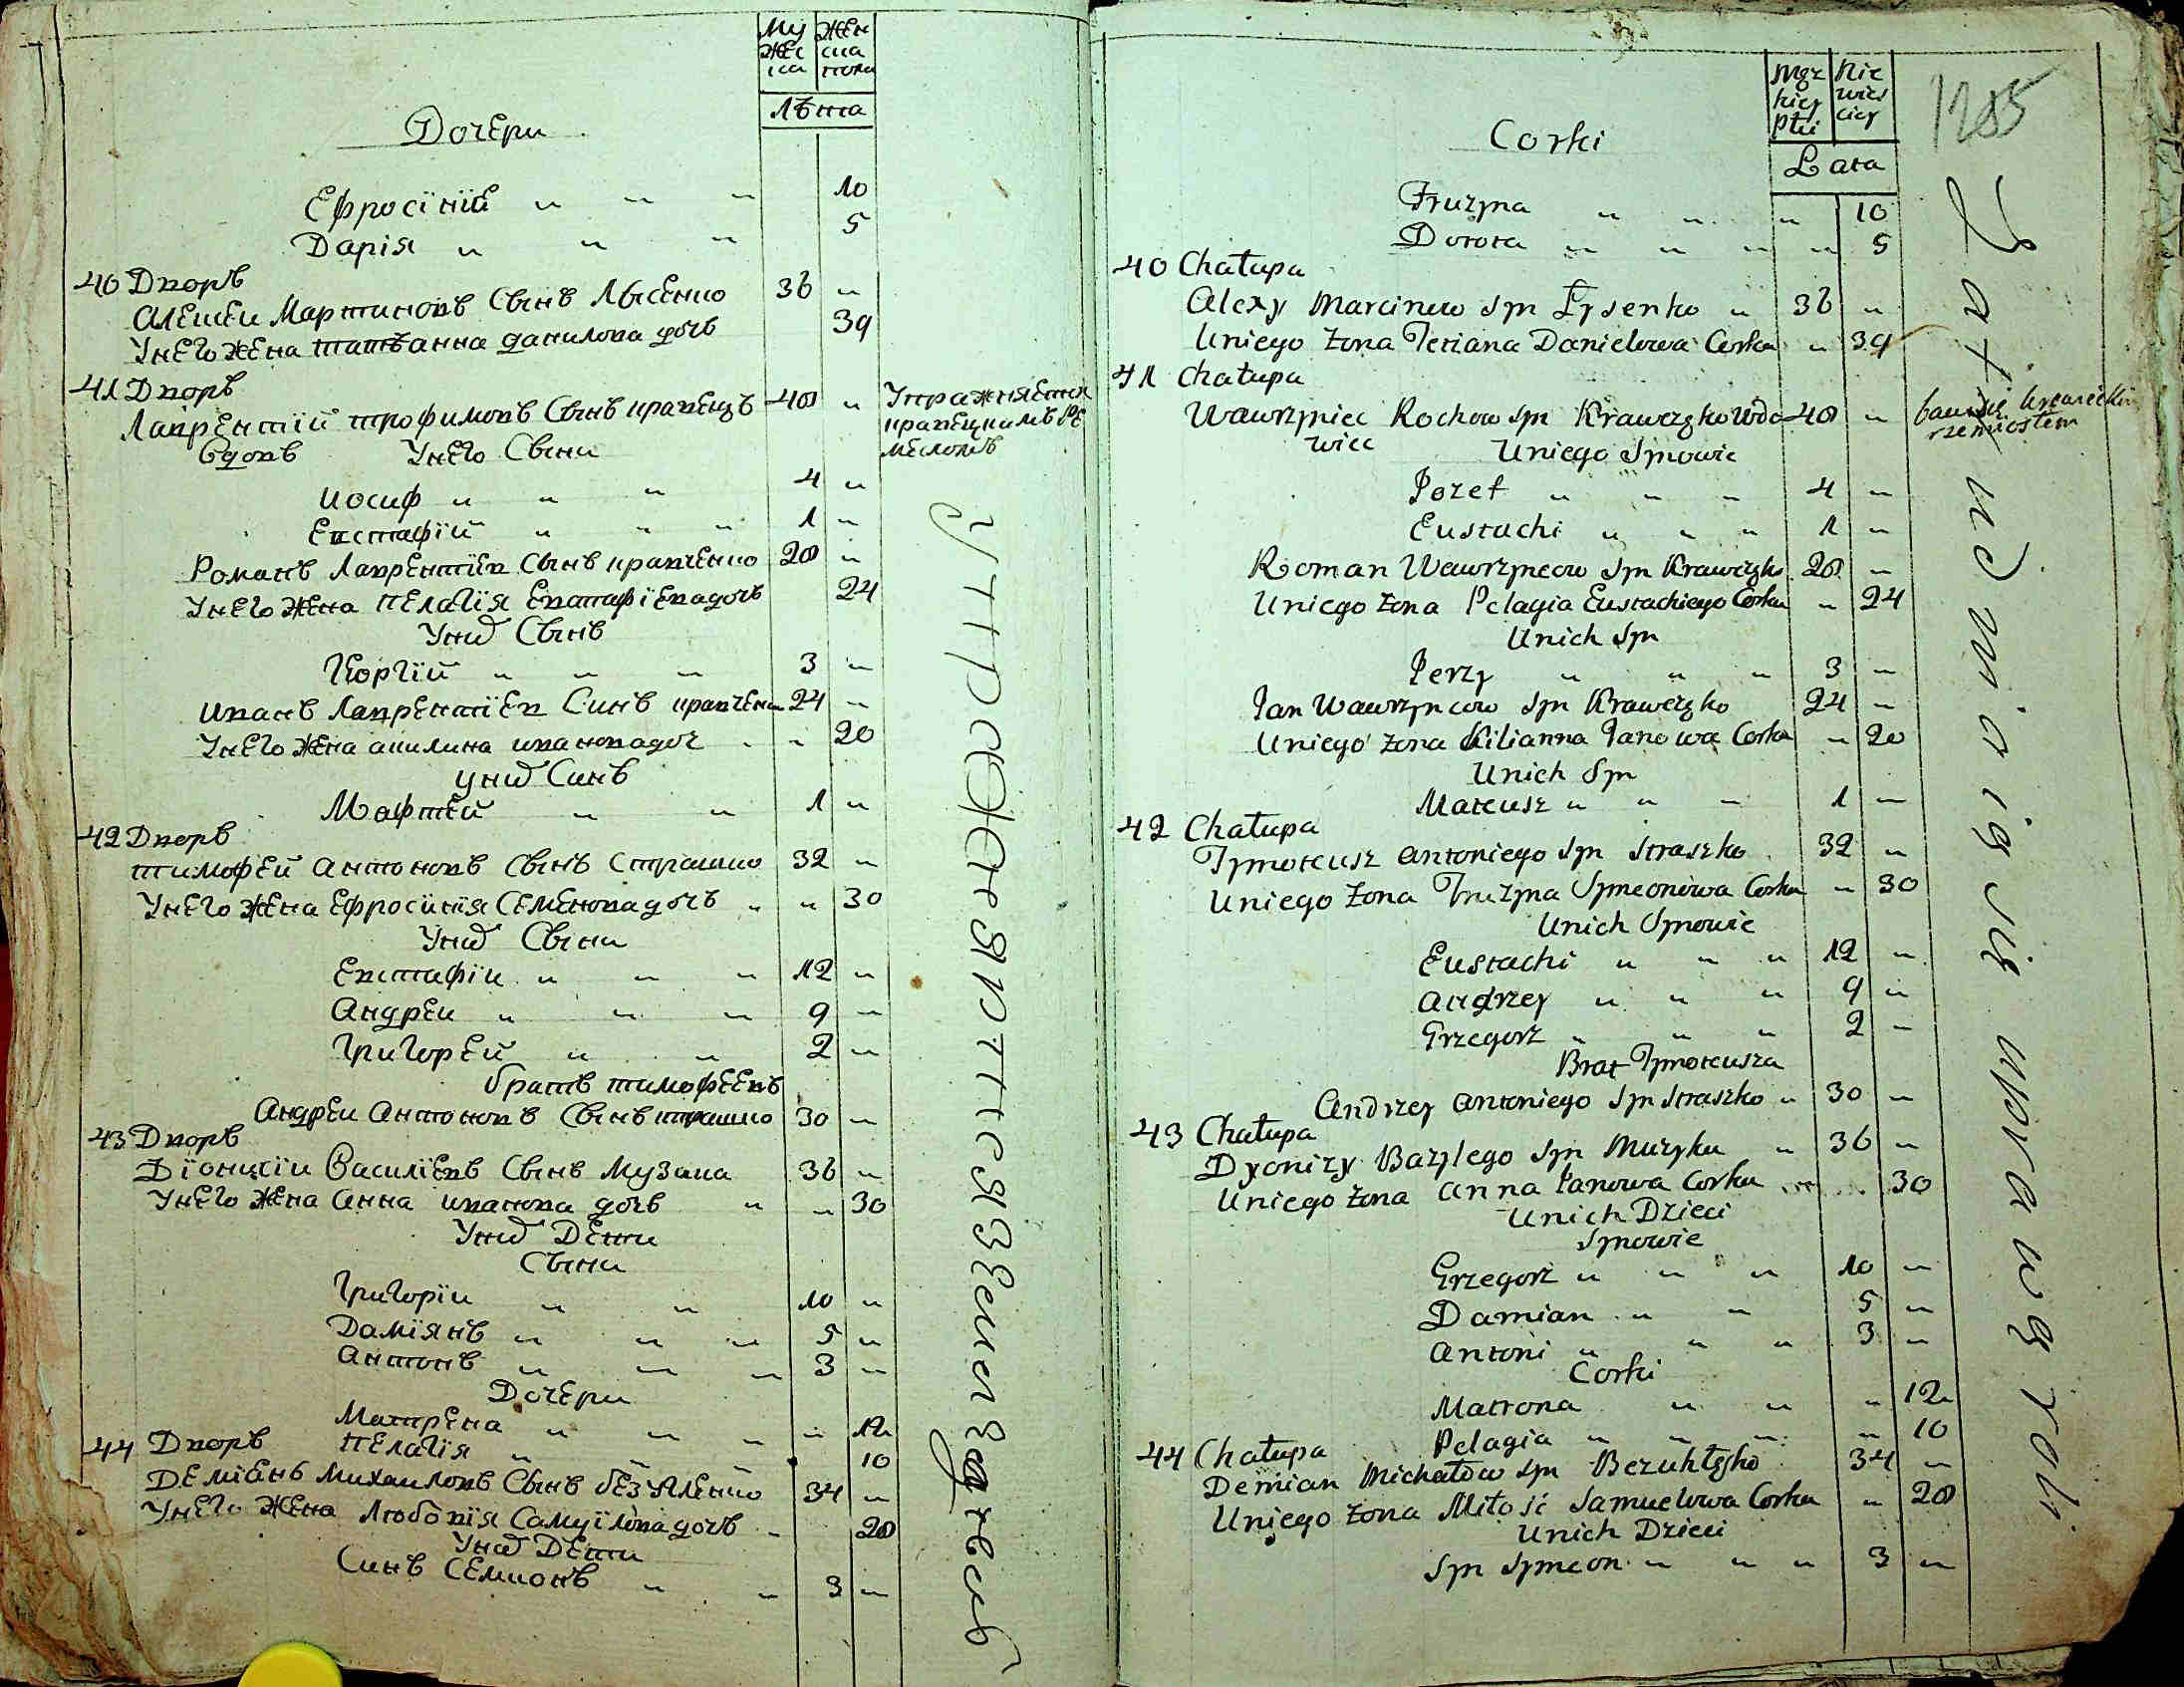 Му
жес
ка
Жен
ска
пола
Лѣта
Дочери
Ефросінїй " " " 10
Дарія " " " 5
40 Дворъ
Алексеи Мартиновъ Сынъ Лысенко 36 "
Унего жена татѣанна данилова дочъ 39
41 Дворъ
Лаврентій трофимовъ Сынъ кравецъ 40 "
Вдовъ Унего Сыни
Упражняется
кравецкимъ ре
месломъ
иосиф " " " 4 "
Евстафїй " " " 1 "
Романъ Лаврентїев Сынъ кравченко 20 "
Унего жена Пелагїя Евстафіева дочъ 24
Уних Сынъ
Георгїй " " " 3 "
иванъ Лаврентїев Синъ кравченк 24 "
Унего жена акилина иванова доч " " 20
Уних Синъ
Мафтей " " 1 "
42 Дворъ
тимофей антоновъ Сынъ Страшко 32 "
Унего жена Ефросинїя Семенова дочъ " " 30
Уних Сыни
Евстафїи " " " 12 "
Андреи " " " 9 "
Григорей " " 2 "
братъ тимофеевъ
Андреи Антоновъ Сынъ страшко 30 "
43 Дворъ
Дїонисїи Василїевъ Сынъ Музика 36 "
Унего жена Анна иванова дочъ " " 30
Уних Дети
Сыни
Григорїи " " 10 "
Дамїянъ " " " 5 "
антонъ " " " 3 "
Дочери
Матрена " " " " 12
Пелагїя " " " 10
44 Дворъ
Демїянъ Михаиловъ Сынъ 34 "
Унего Жена Любовїя Самуїлова дочъ " 20
Уних Дети
Синъ Семионъ " " 3 "
Упражняются земледелїемъ
Męz
kiej
płci
Nie
wies
ciej
Lata
1285
Corki
Fruzyna " " " 10
Dorota " " " " 5
40 Chałupa
Alexy Marcinow syn Łysenko " 36 "
Uniego żona Tetiana Danielowa Corka " 39
41 Chałupa
Wawrzyniec Rochow syn Krawczyko Wdo 40 "
wiec Uniego Synowie
bawi się krawieckim
rzemiosłem
Jozef " " " 4 "
Eustachi " " " 1 "
Roman Wawrzyncow syn Krawczyko 20 "
Uniego żona Pelagia Eustachiego Corka " 24
Unich syn
Jerzy " " " 3 "
Jan Wawrzyncow syn Krawczyko 24 "
Uniego żona Kilianna Janowa Corka " 20
Unich Syn
Mateusz " " " 1 "
42 Chałupa
Tymoteusz antoniego syn Straszko 32 "
Uniego żona Fruzyna Symeonowa Corka " 30
Unich Synowie
Eustachi " " " 12 "
andrzey " " " 9 "
Grzegorz " " " 2 "
Brat Tymoteusza
Andrzey antoniego syn Straszko " 30 "
43 Chałupa
Dyonizy Bazylego syn Muzyka " 36 "
Uniego żona anna Janowa Corka " 30
Unich Dzieci
Synowie
Grzegorz " " " 10 "
Damian " " 5 "
antoni " " " 3 "
Corki
Matrona " " " 12
Pelagia " " " " 10
44 Chałupa
Demian Michałow syn 34 "
Uniego żona Miłość Samuelowa Corka " 20
Unich Dzieci
Syn Symeon " " " 3 "
Zatrudniaią się uprawą roli